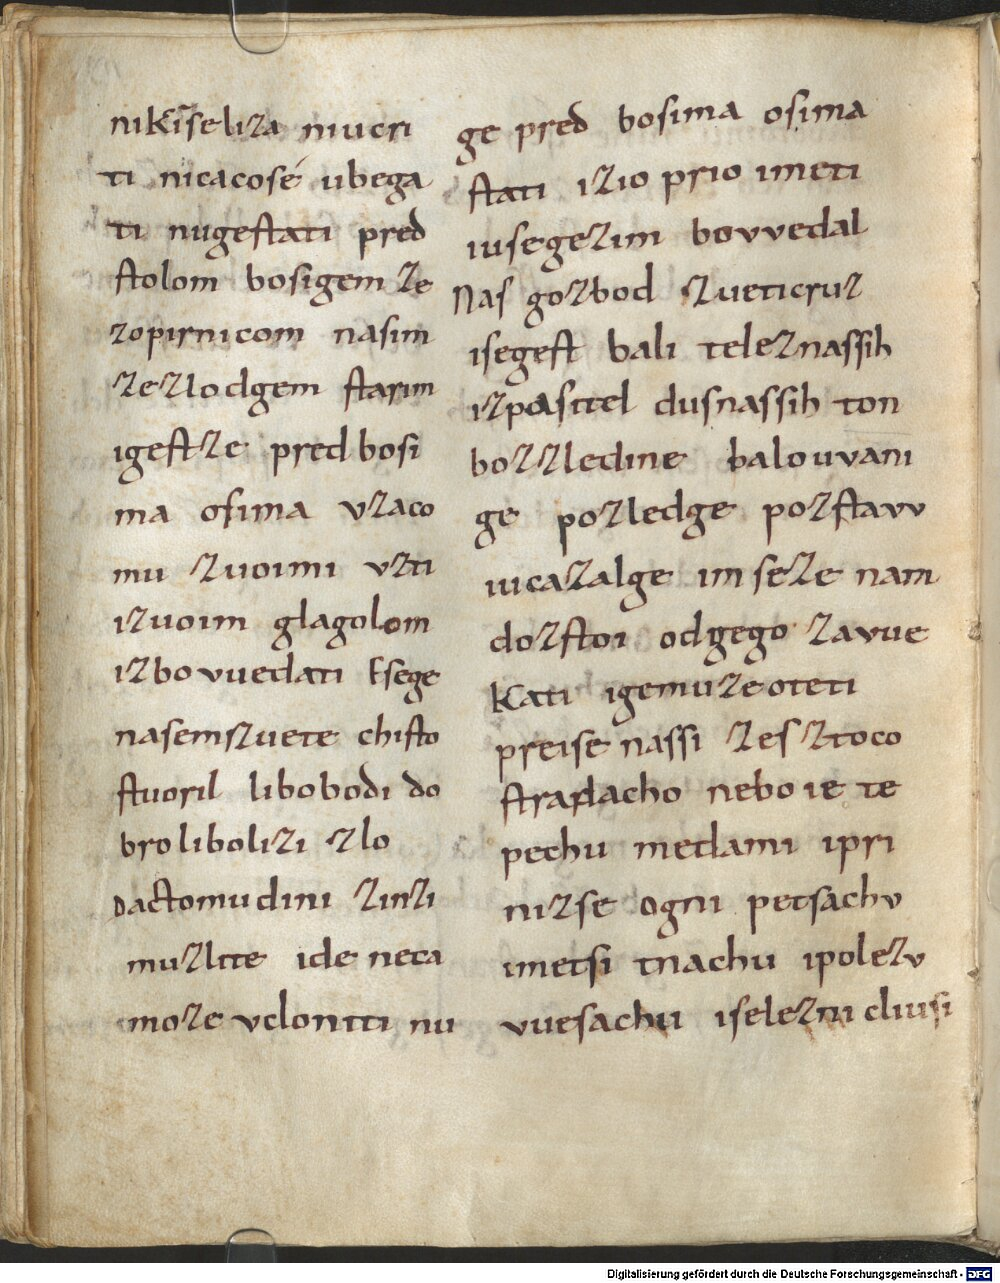 nikiſeliza mucri
ti nicacosé ubega
ti nugeſtati pred
ſtolom bosigem ze
zopirnicom nasim
zezlodgem ſtarim
igeſtze pred bosi
ma osima vzaco
mu zuoimi vzti
izuoim glagolom
izbovuedati Eſege
nasemszuete chiſto
ſtuoril libobodi do
broliboliſi zlo
Dactomudini zinzi
muzlite ide neca
moze vcloniti nu
ge pred bosima osima
ſtati izio prio imeti
iusegezim bovvedal
Naſ gozbod zueticruz
iſegeſt bali teleznaſſih
izpasitel dusnaſſih ton
bozzledine balouvani
ge pozledge pozſtavv
iucazalge im ſeze nam
dozſtoi odgego zavue
kati igemuze oteti
preise naſſi zeſztoco
ſtradacho nebo ie te
pechu metlami ipri
nizse ogni petsachv
imetſi tnachu ipolezv
vuesachu iſelezni cliuſi
Digitalisierung gefördert durch die Deutsche Forschungsgemeinschaft - DFG